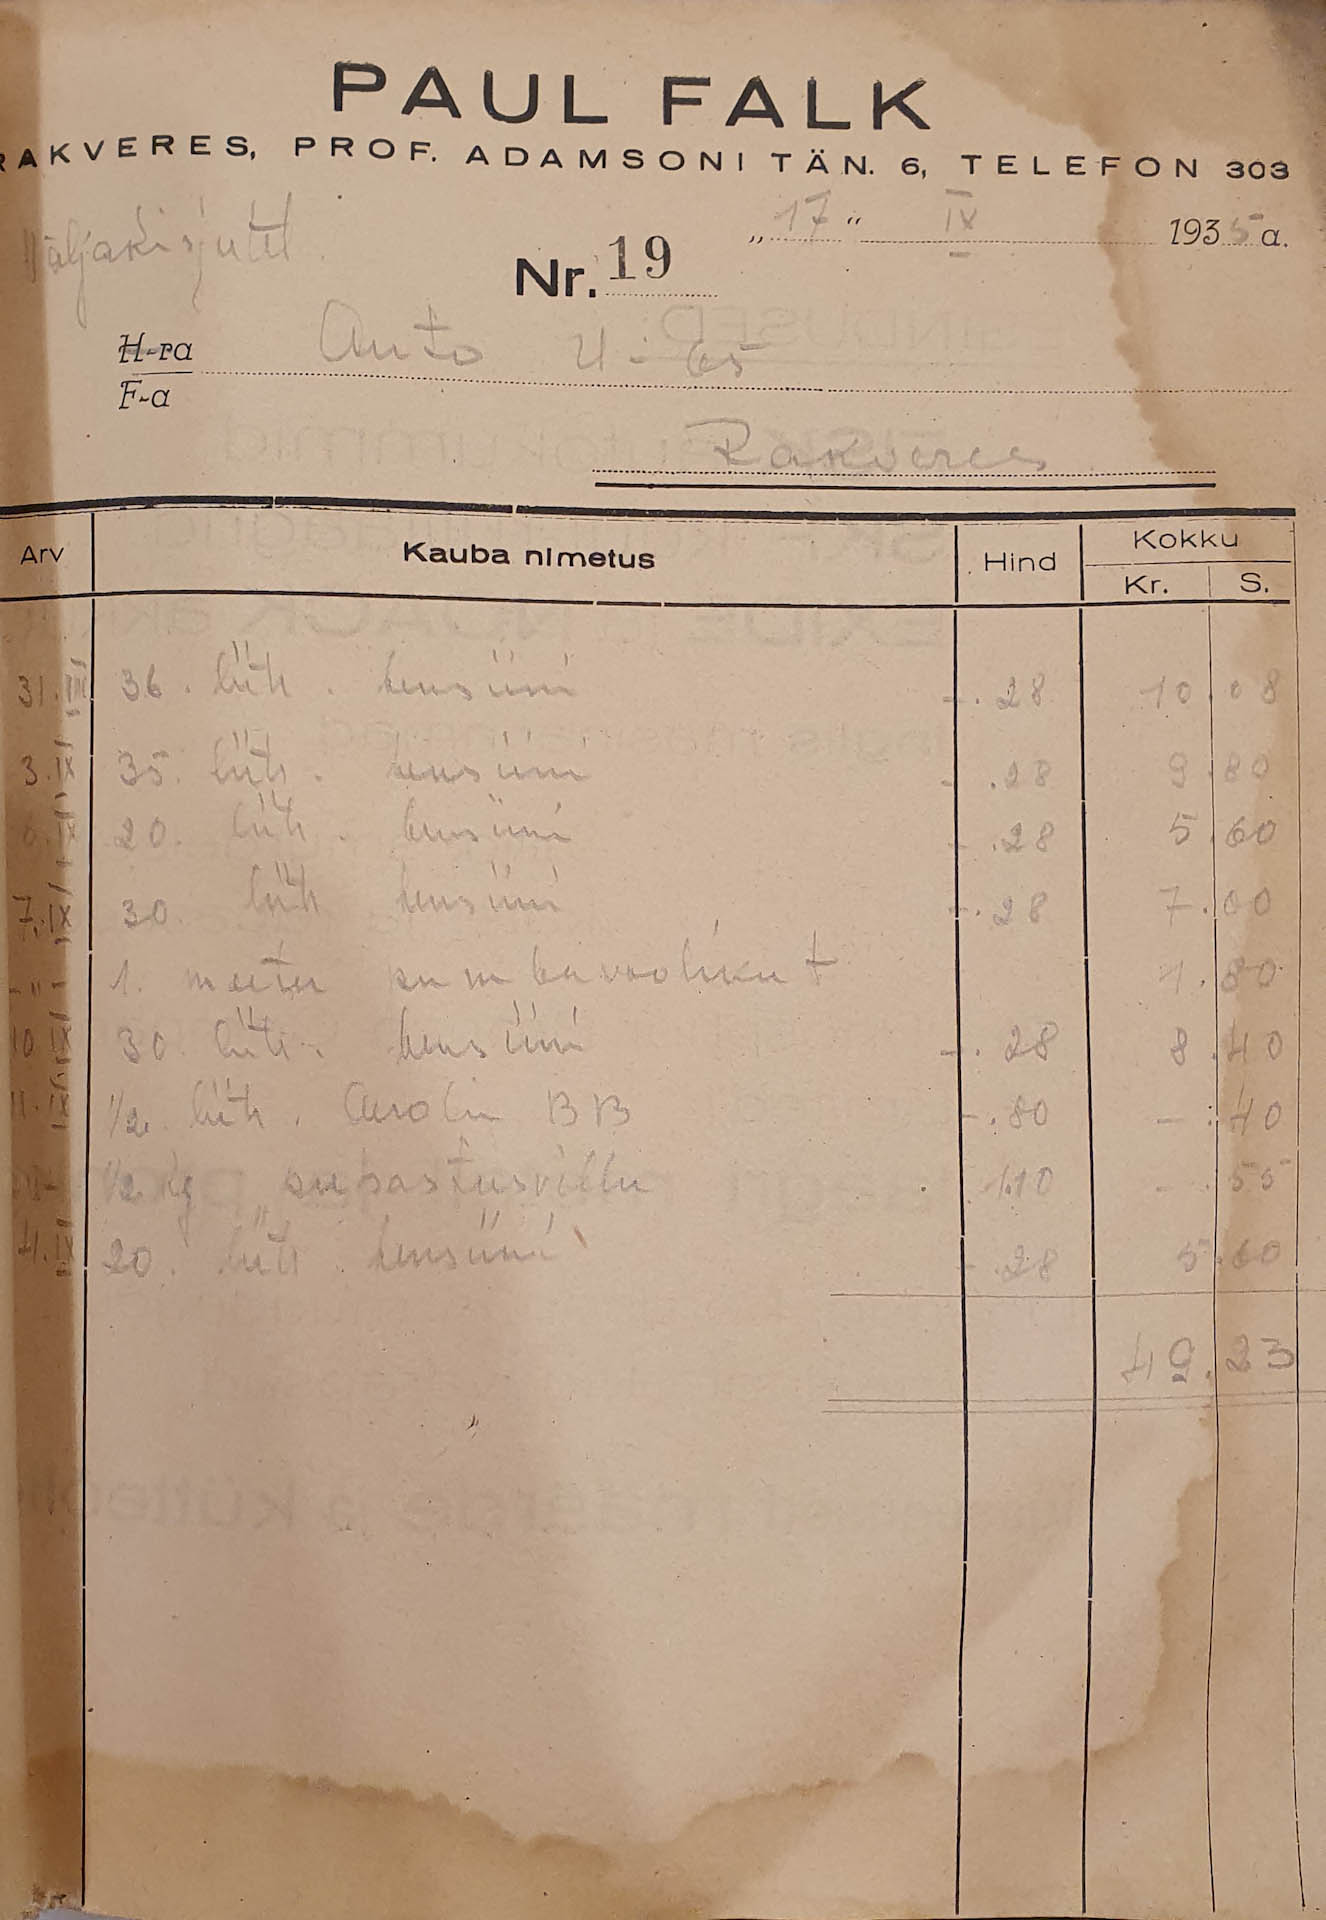 PAUL FALK
RAKVERES, PROF. ADAMSONI TÄN. 6, TELEFON 303
Väljakirjutet.
„17“ IX 1935 a.
Nr. 19
H-ra
F-a
Auto U-65
Rakveres
Arv Kauba nimetus Hind Kokku
Kr. S.
31. III 36. liitr. bensiini -.28 10.08
3. IX 35. liitr. bensiini -.28 9.80
6. IX 20. liitr. bensiini -.28 5.60
7. IX 30. liitr bensiini -.28 7.00
-"- 1. meeter pumbavoolikut 1.80
10 IX 30. liitr. bensiini -.28 8.40
11. IX 1/2. liitr. BB -.80 -.40
-"- 1/2 kg puhastusvillu 1.10 -.55
IX 20. liitr. bensiini -.28 5.60
49.23